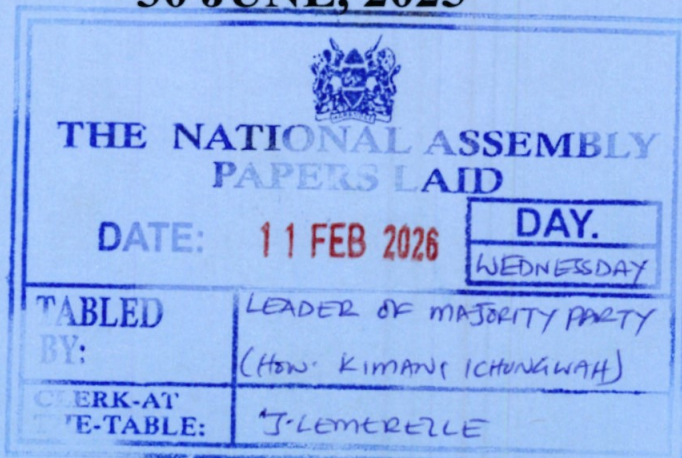 30 JUNE, 2025
THE NATIONAL ASSEMBLY
PAPERS LAID
DATE: 11 FEB 2026
DAY.
WEDNESSDAY
TABLED BY:
LEADER OF MAJORITY PARTY
(HON. KIMANI ICHUNGWAH)
CLERK-AT
THE-TABLE:
J. LEMERELLE